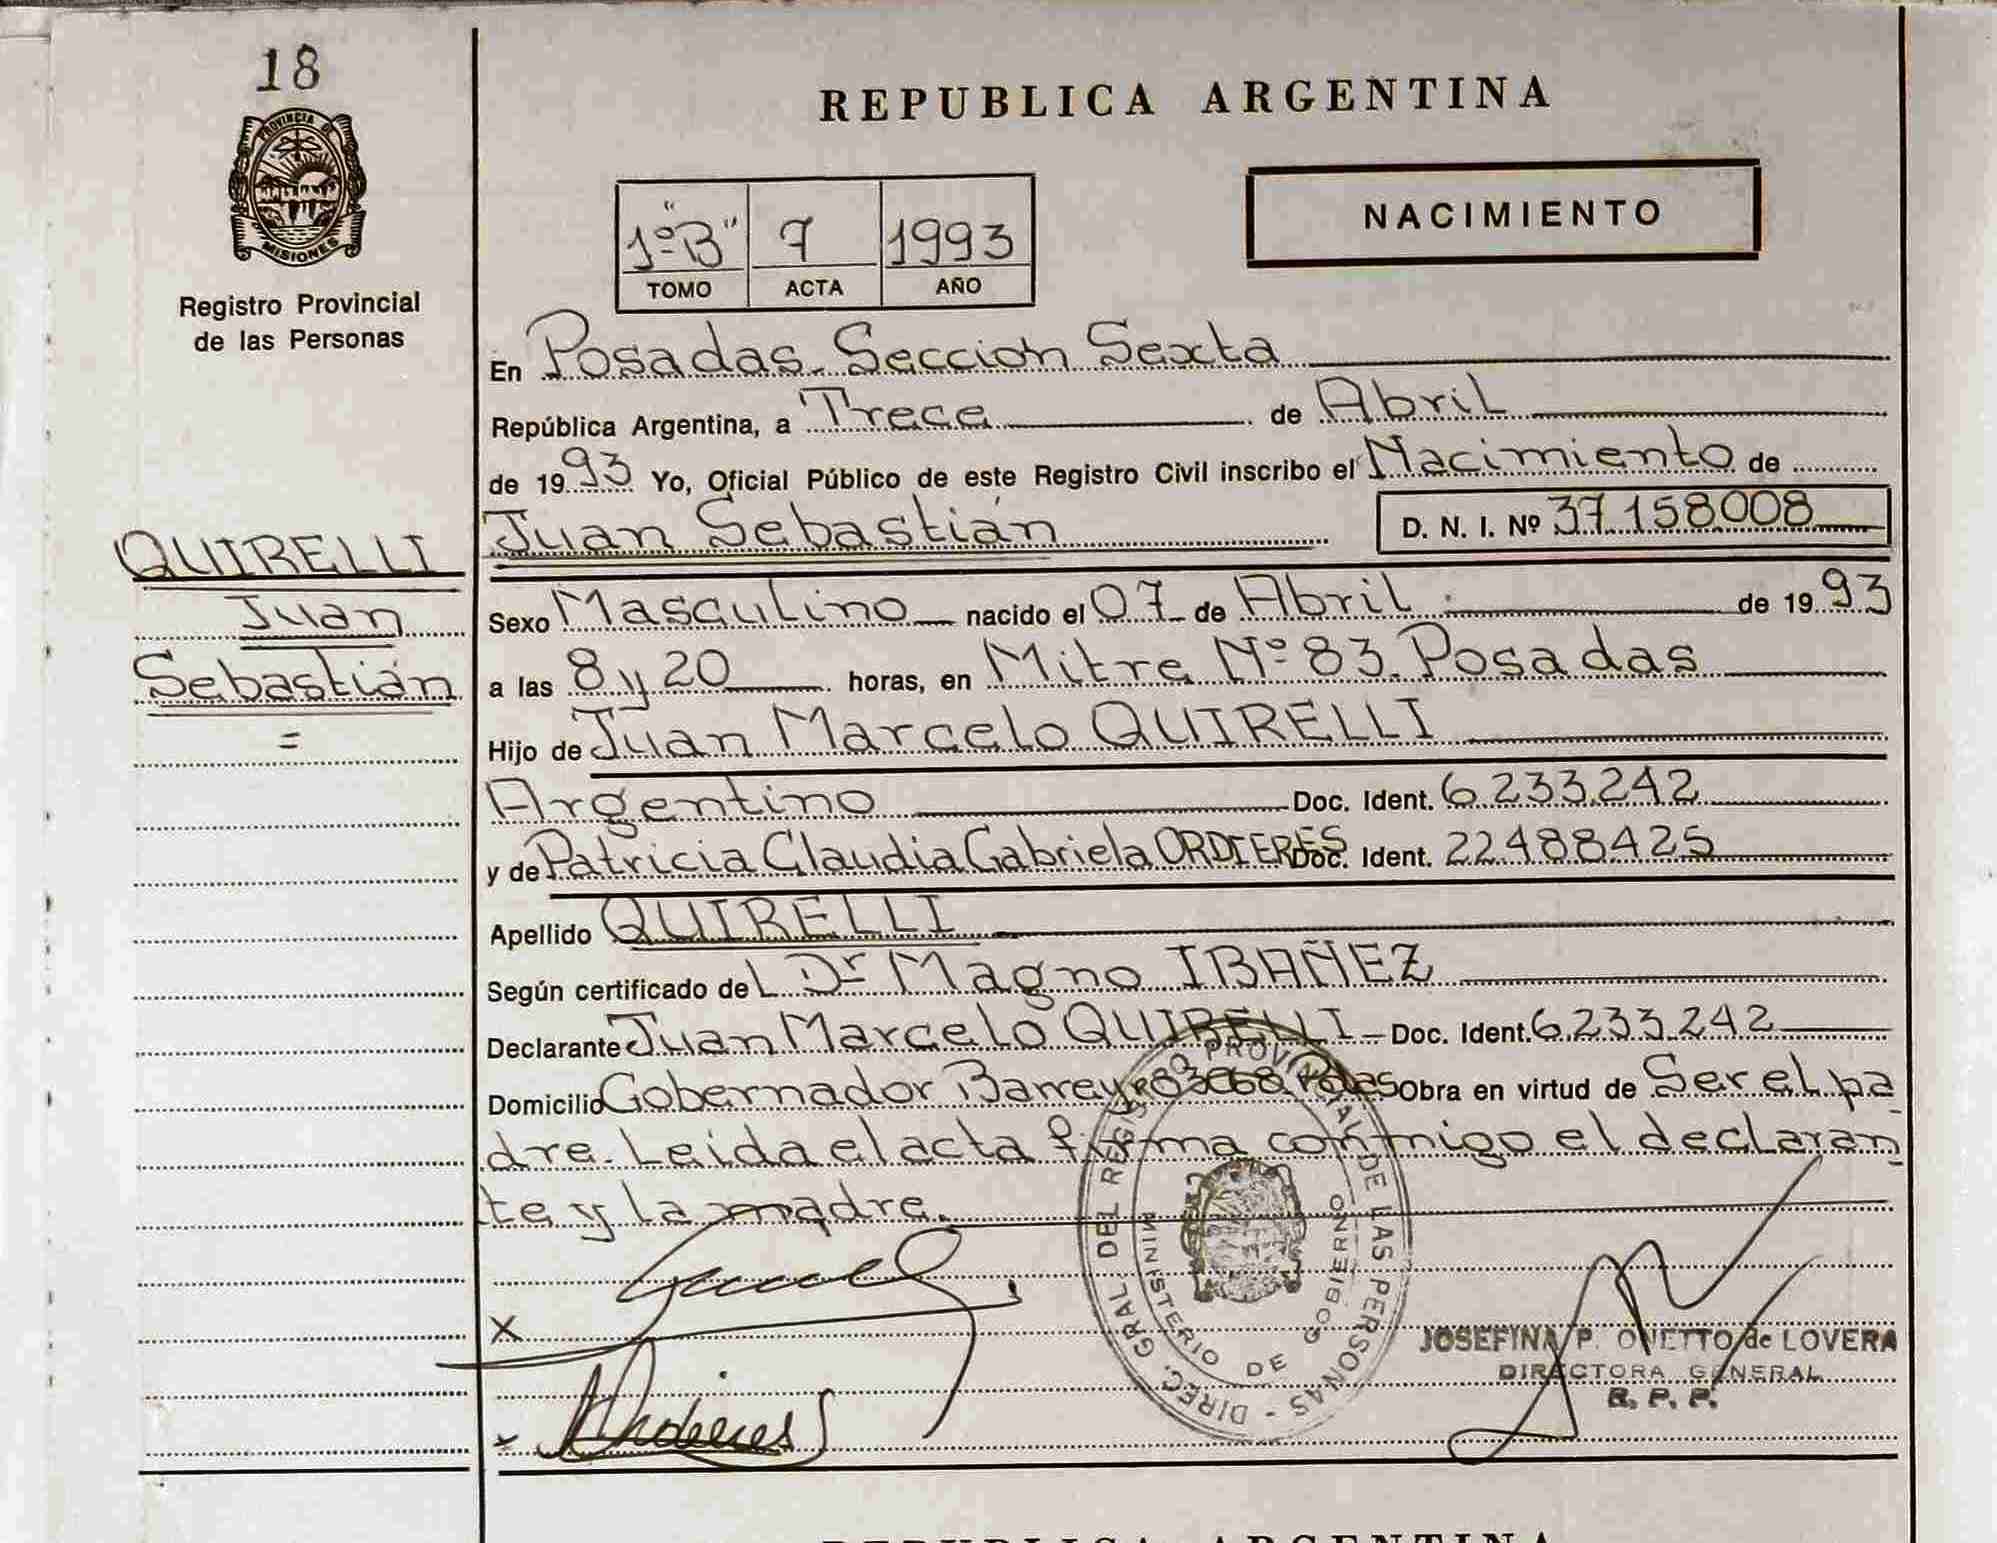 18
PROVINCIA DE
MISIONES
Registro Provincial
de las Personas
REPUBLICA ARGENTINA
1º "B" 7 1993
TOMO ACTA AÑO
NACIMIENTO
En Posadas. Seccion Sexta
República Argentina, a Trece de Abril
de 1993 Yo, Oficial Público de este Registro Civil inscribo el Nacimiento de
Juan Sebastián D. N. I. Nº 37158008
QUIRELLI
Juan
Sebastián
=
Sexo Masculino nacido el 07 de Abril de 1993
a las 8 y 20 horas, en Mitre Nº 83. Posadas
Hijo de Juan Marcelo QUIRELLI
Argentino Doc. Ident. 6.233.242
y de Patricia Claudia Gabriela ORDIERES Doc. Ident. 22488425
Apellido QUIRELLI
Según certificado del Dr Magno IBAÑEZ
Declarante Juan Marcelo QUIRELLI Doc. Ident. 6.233.242
Domicilio Gobernador Barreyro Obra en virtud de Ser el pa
dre. Leida el acta firma conmigo el declaran
te y la madre.
DIREC. GRAL DEL REGISTRO PROVINCIAL DE LAS PERSONAS -
MINISTERIO DE GOBIERNO
X
JOSEFINA P. ONETTO de LOVERA
DIRECTORA GENERAL
R. P. P.
REPUBLICA ARGENTINA